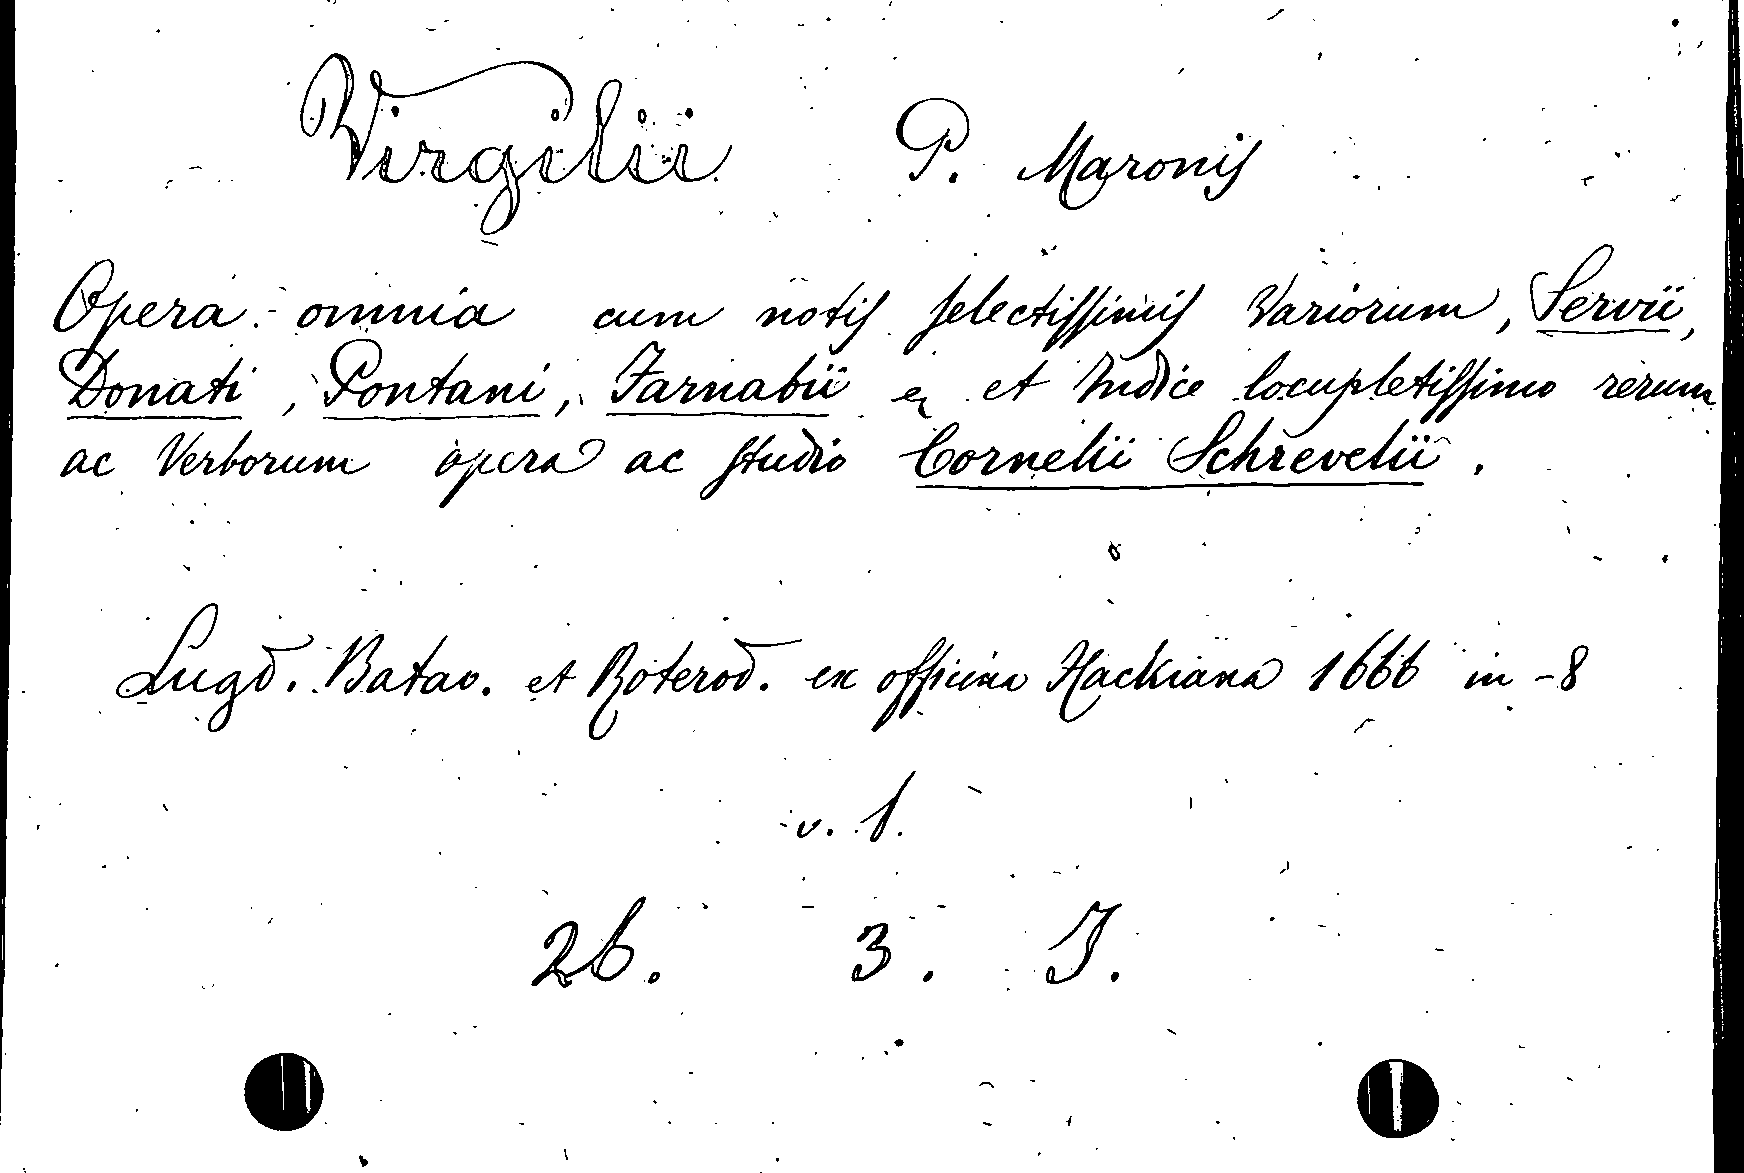 Virgilii P. Maronis
Opera omnia cum notis selectissimis Variorum, Servii,
Donati, Pontani, Farnabii et Indice locupletissimo rerum
ac Verborum opera ac studio Cornelii Schrevelii.
Lugd. Batav. et Roterod. ex officina Hackiana 1666 in-8
v. 1.
26. 3. J.